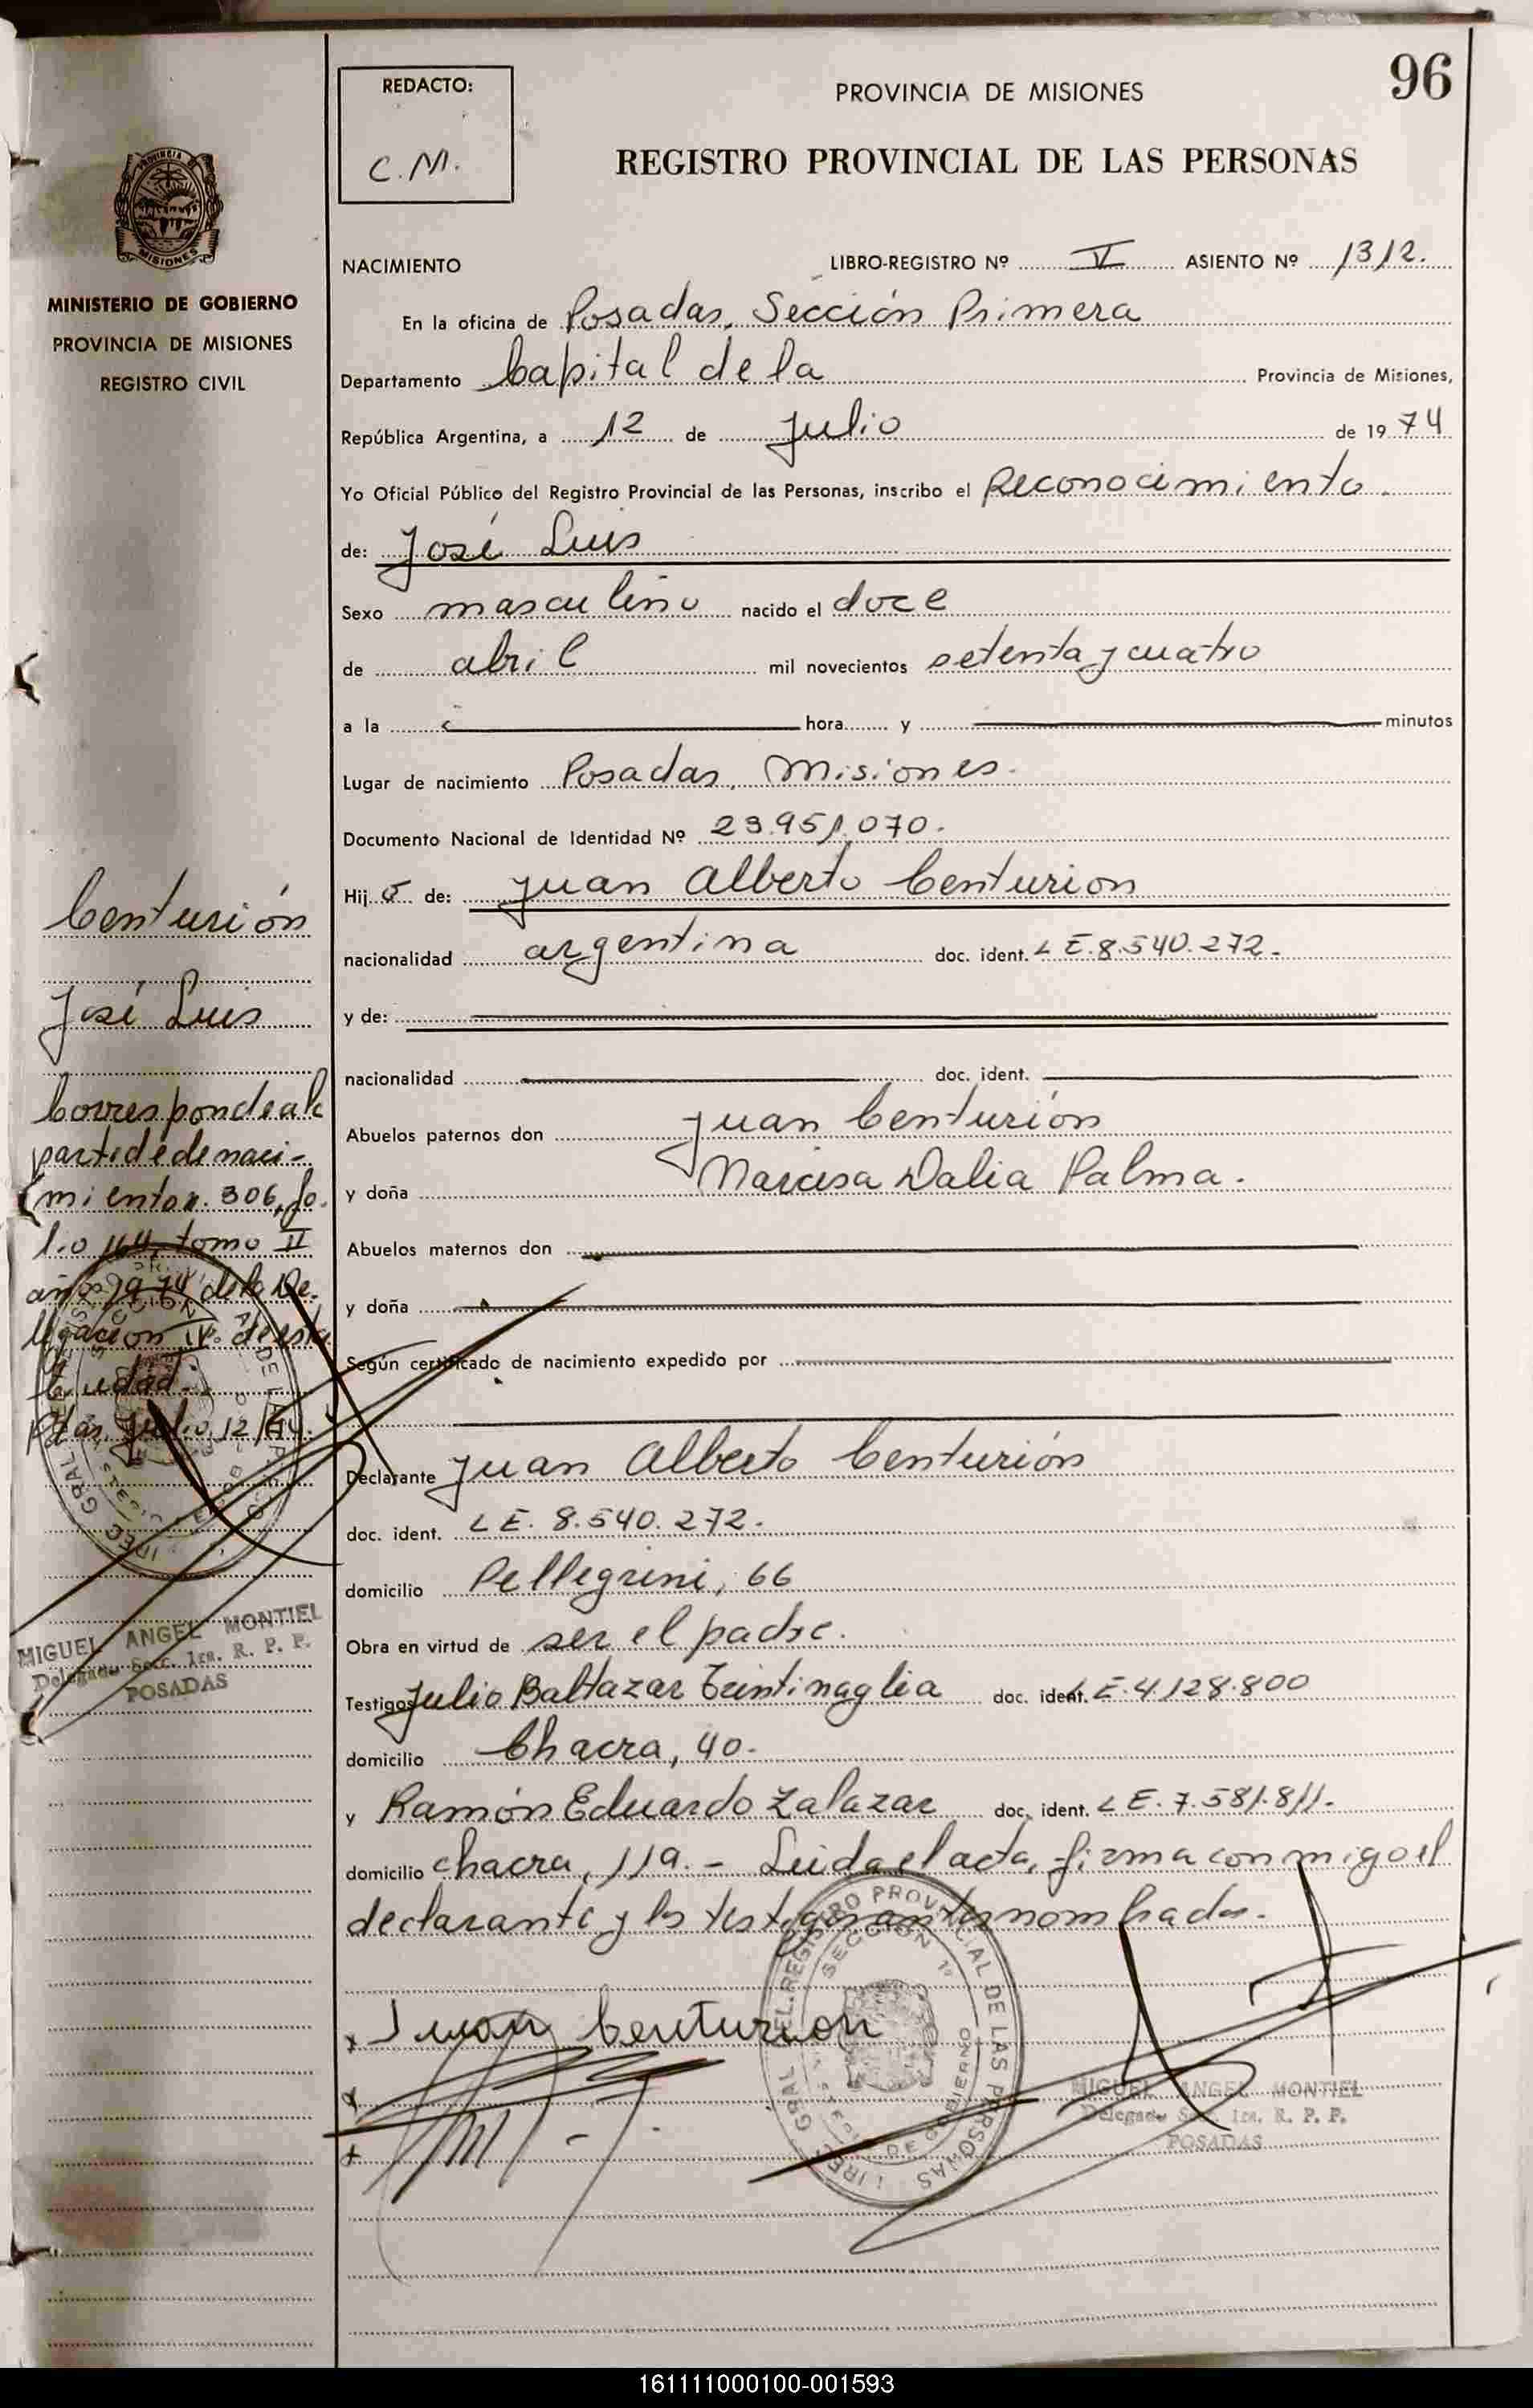 96
REDACTO:
C.M.
PROVINCIA DE MISIONES
REGISTRO PROVINCIAL DE LAS PERSONAS
MINISTERIO DE GOBIERNO
PROVINCIA DE MISIONES
REGISTRO CIVIL
NACIMIENTO LIBRO-REGISTRO Nº V ASIENTO Nº 1312.
En la oficina de Posadas, Sección Primera
Departamento Capital de la Provincia de Misiones,
República Argentina, a 12 de Julio de 1974
Yo Oficial Público del Registro Provincial de las Personas, inscribo el Reconocimiento.
de: José Luis
Sexo masculino nacido el doce
de abril mil novecientos setenta y cuatro
a la hora y minutos
Lugar de nacimiento Posadas, Misiones.
Documento Nacional de Identidad Nº 23.951.070.
Hijo de: Juan Alberto Centurion
nacionalidad argentina doc. ident. LE.8.540.272.
y de:
nacionalidad doc. ident.
Abuelos paternos don Juan Centurión
y doña Narcisa Dalia Palma.
Abuelos maternos don
y doña
Según certificado de nacimiento expedido por
Declarante Juan Alberto Centurión
doc. ident. LE. 8.540.272.
domicilio Pellegrini, 66
Obra en virtud de ser el padre.
Testigos Julio Baltazar Trintinaglia doc. ident. LE.4.128.800
domicilio Chacra, 40.
y Ramón Eduardo Zalazar doc. ident. LE.7.581.811.
domicilio chacra, 119.- Leida el acta, firma con migo el
declarante y los testigos antes nombrados.
Juan Centurion
Centurión
José Luis
Corresponde al
partidá de naci-
miento n. 306, fo-
lio 164, tomo II
año 1974 de la De-
legación IVº de esta
Ciudad.
Pdas, Julio, 12/74.
MIGUEL ANGEL MONTIEL
Delegado Secc. 1ra. R. P. P.
POSADAS
DEL REGISTRO PROVINCIAL DE LAS PERSONAS
SECCION 1ª
DE GOBIERNO
MIGUEL ANGEL MONTIEL
Delegado Secc. 1ra. R. P. P.
POSADAS
161111000100-001593